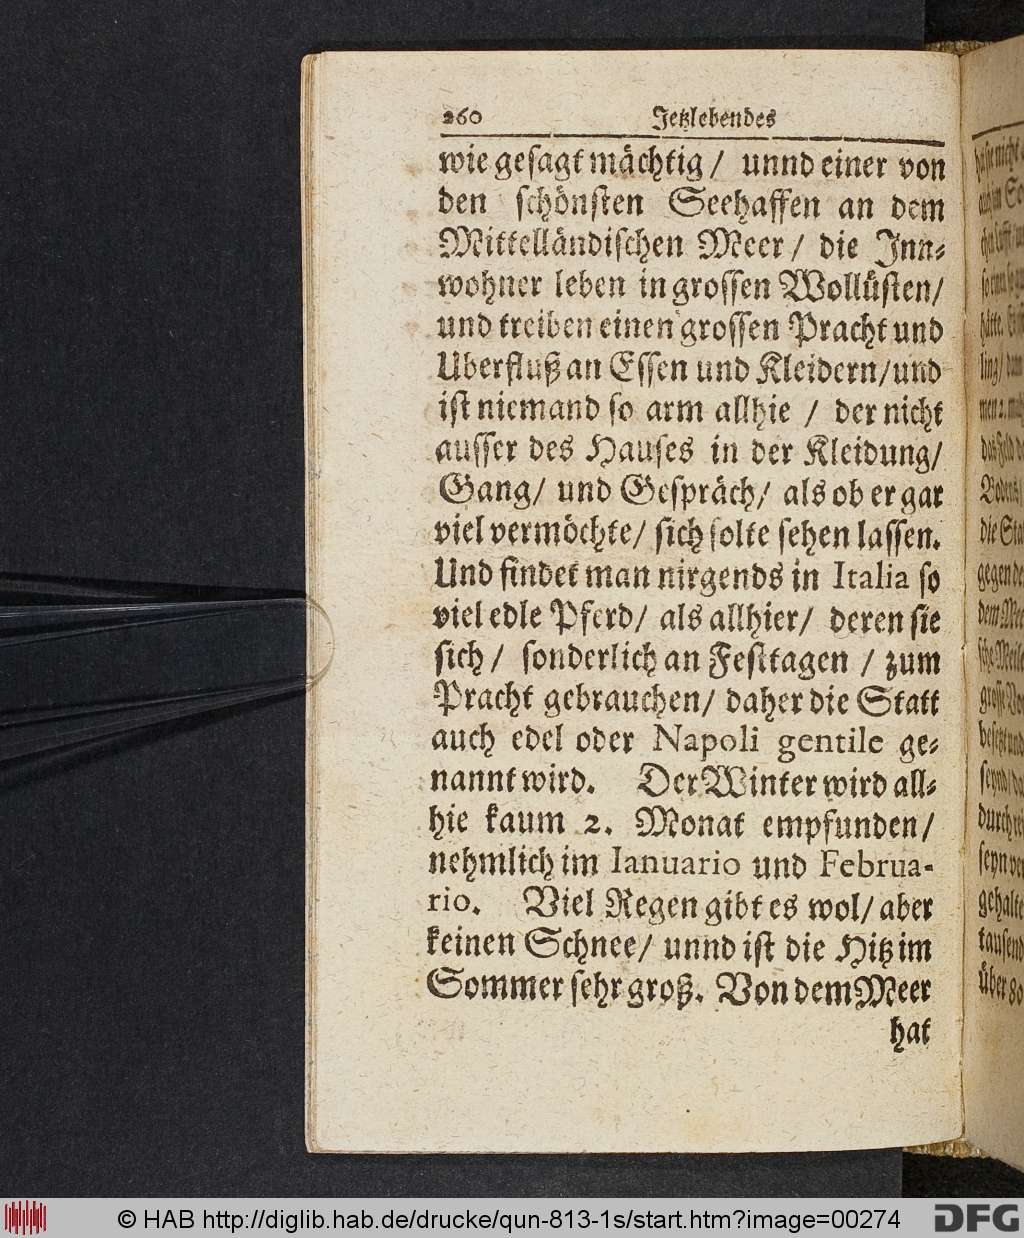 260 Jetzlebendes
wie gesagt mächtig / unnd einer von
den schönsten Seehaffen an dem
Mittelländischen Meer / die Inn-
wohner leben in grossen Wollüsten /
und treiben einen grossen Pracht und
Uberfluß an Essen und Kleidern / und
ist niemand so arm allhie / der nicht
ausser des Hauses in der Kleidung /
Gang / und Gespräch / als ob er gar
viel vermöchte / sich solte sehen lassen.
Und findet man nirgends in Italia so
viel edle Pferd / als allhier / deren sie
sich / sonderlich an Festtagen / zum
Pracht gebrauchen / daher die Statt
auch edel oder Napoli gentile ge-
nannt wird. Der Winter wird all-
hie kaum 2. Monat empfunden /
nehmlich im Ianuario und Februa-
rio. Viel Regen gibt es wol / aber
keinen Schnee / unnd ist die Hitz im
Sommer sehr groß. Von dem Meer
hat
© HAB http://diglib.hab.de/drucke/qun-813-1s/start.htm?image=00274
DFG